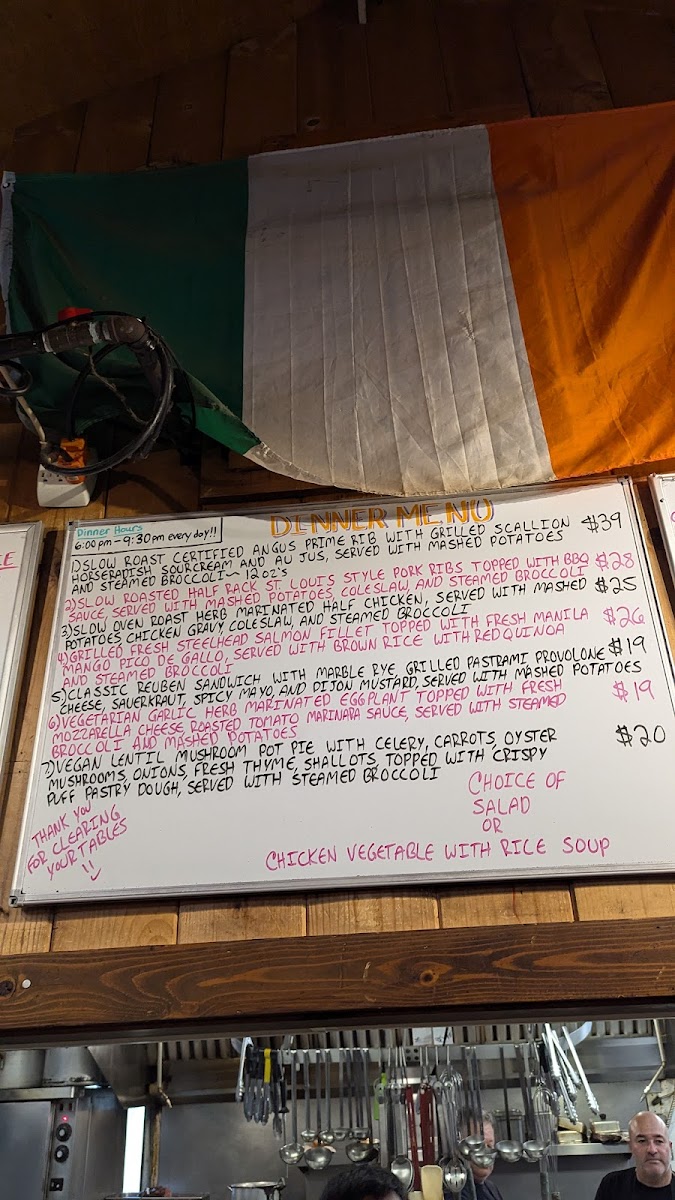 Dinner Hours
6:00 pm - 9:30 pm every day!!
DINNER MENU
1) SLOW ROAST CERTIFIED ANGUS PRIME RIB WITH GRILLED SCALLION $39
HORSERADISH SOURCREAM AND AU JUS, SERVED WITH MASHED POTATOES
AND STEAMED BROCCOLI ~ 12 OZ'S
2) SLOW ROASTED HALF RACK ST. LOUIS STYLE PORK RIBS TOPPED WITH BBQ $28
SAUCE, SERVED WITH MASHED POTATOES, COLESLAW, AND STEAMED BROCCOLI
3) SLOW OVEN ROAST HERB MARINATED HALF CHICKEN, SERVED WITH MASHED $25
POTATOES CHICKEN GRAVY COLESLAW, AND STEAMED BROCCOLI
4) GRILLED FRESH STEELHEAD SALMON FILLET TOPPED WITH FRESH MANILA $26
MANGO PICO DE GALLO, SERVED WITH BROWN RICE WITH RED QUINOA
AND STEAMED BROCCOLI
5) CLASSIC REUBEN SANDWICH WITH MARBLE RYE GRILLED PASTRAMI PROVOLONE $19
CHEESE, SAUERKRAUT, SPICY MAYO, AND DIJON MUSTARD, SERVED WITH MASHED POTATOES
6) VEGETARIAN GARLIC HERB MARINATED EGGPLANT TOPPED WITH FRESH $19
MOZZARELLA CHEESE ROASTED TOMATO MARINARA SAUCE, SERVED WITH STEAMED
BROCCOLI AND MASHED POTATOES
7) VEGAN LENTIL MUSHROOM POT PIE WITH CELERY, CARROTS, OYSTER $20
MUSHROOMS, ONIONS, FRESH THYME, SHALLOTS, TOPPED WITH CRISPY
PUFF PASTRY DOUGH, SERVED WITH STEAMED BROCCOLI
CHOICE OF
SALAD
OR
CHICKEN VEGETABLE WITH RICE SOUP
THANK YOU
FOR CLEARING
YOUR TABLES
!!